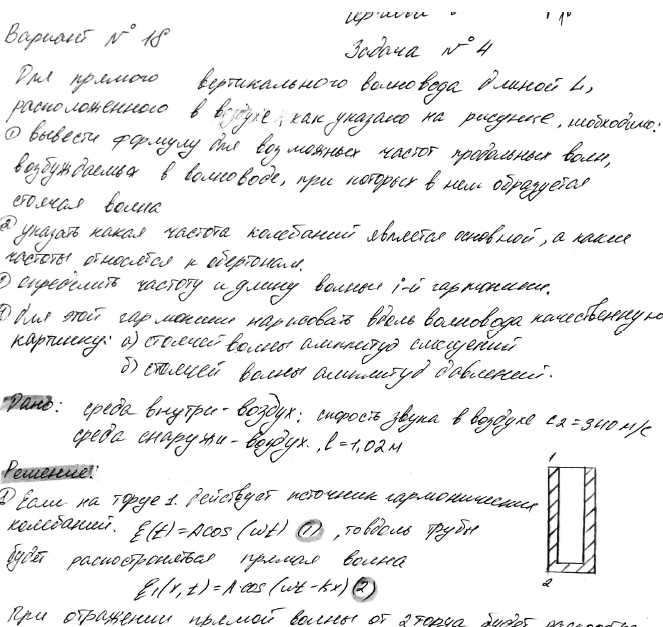 Вариант № 18
Задача № 4
Для прямого вертикального волновода длиной L,
расположенного в воздухе, как указано на рисунке, необходимо:
① вывести формулу для возможных частот продольных волн,
возбуждаемых в волноводе, при которых в нем образуется
стоячая волна
② указать какая частота колебаний является основной, а какие
частоты относятся к обертонам.
определить частоту и длину волны i-й гармоники.
для этой гармоники нарисовать вдоль волновода качественную
картинку: а) стоячей волны амплитуд смещений
б) стоячей волны амплитуд давлений.
Дано: среда внутри - воздух; скорость звука в воздухе c2=340 м/с
среда снаружи - воздух., l=1,02 м
Решение:
① Если на торце 1. действует источник гармонических
колебаний. ξ(t)=Acos(ωt) ①, то вдоль трубы
будет распостраняться прямая волна
ξ₁(x,t)=A·cos(ωt-kx) ②
При отражении прямой волны от 2 торца будет
1
2